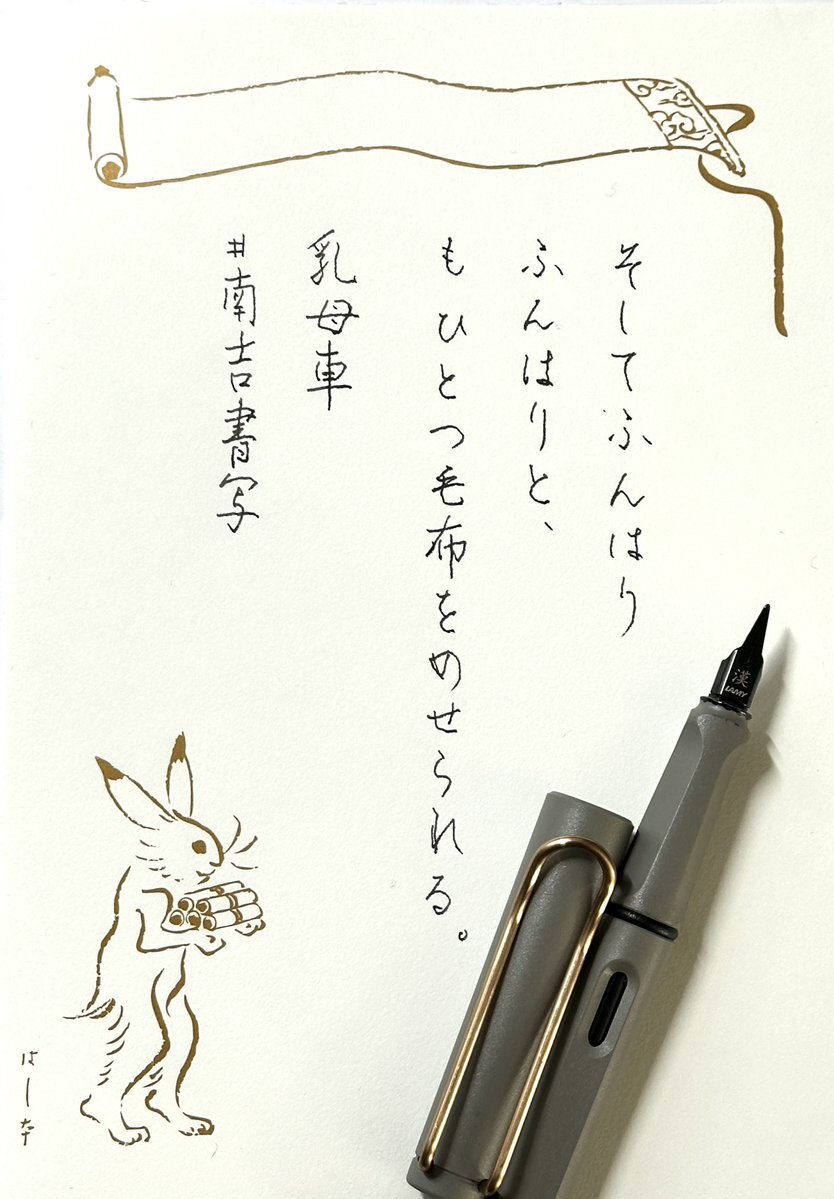 そしてふんはり
ふんはりと、
もひとつ毛布をめせられる。
乳母車
#南吉書写
漢
LAMY